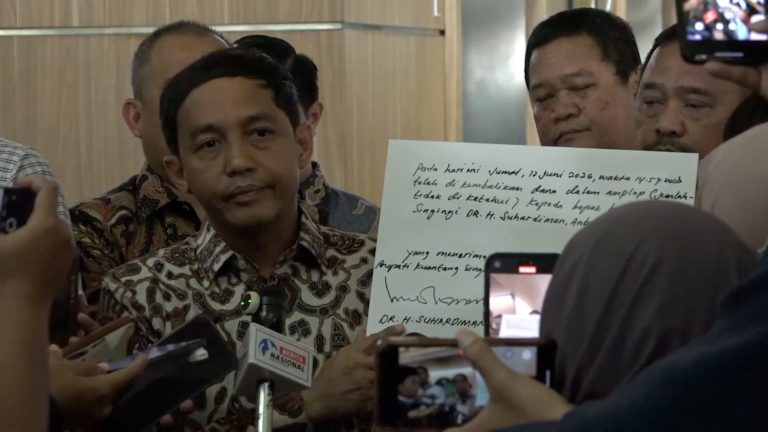 Pada hari ini Jumat, 12 Juni 2026, waktu 14.57 wib
telah di kembalikan dana dalam amplop (jumlah
tidak di ketahui) kepada bapak
Singingi DR. H. Suhardiman, Amb
yang menerima
Bupati Kuantang Sing
DR. H. SUHARDIMAN
BERITA
NASIONAL